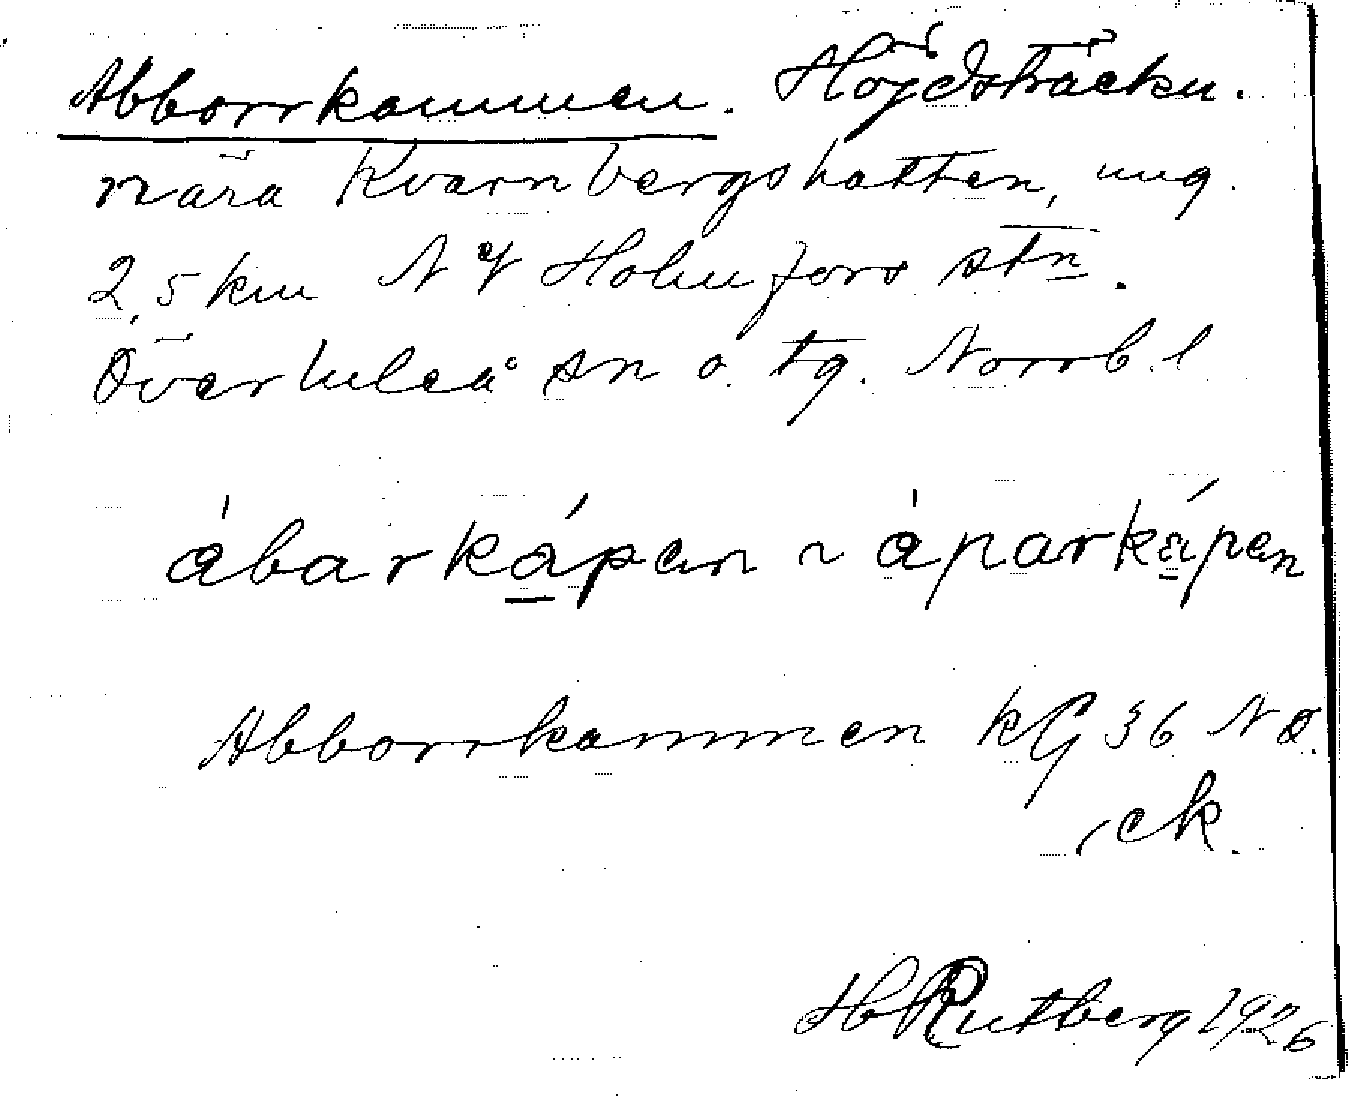 Abborrkammen. Höjdsträcka.
nära Kvarnbergshatten, ung.
2,5 km N V Holmfors stn.
Överluleå sn o. tg. Norrb. l
ábarkápan ~ áparkápan
Abborrkammen kG 36 N Ö.
, ek.
H Rutberg 1926